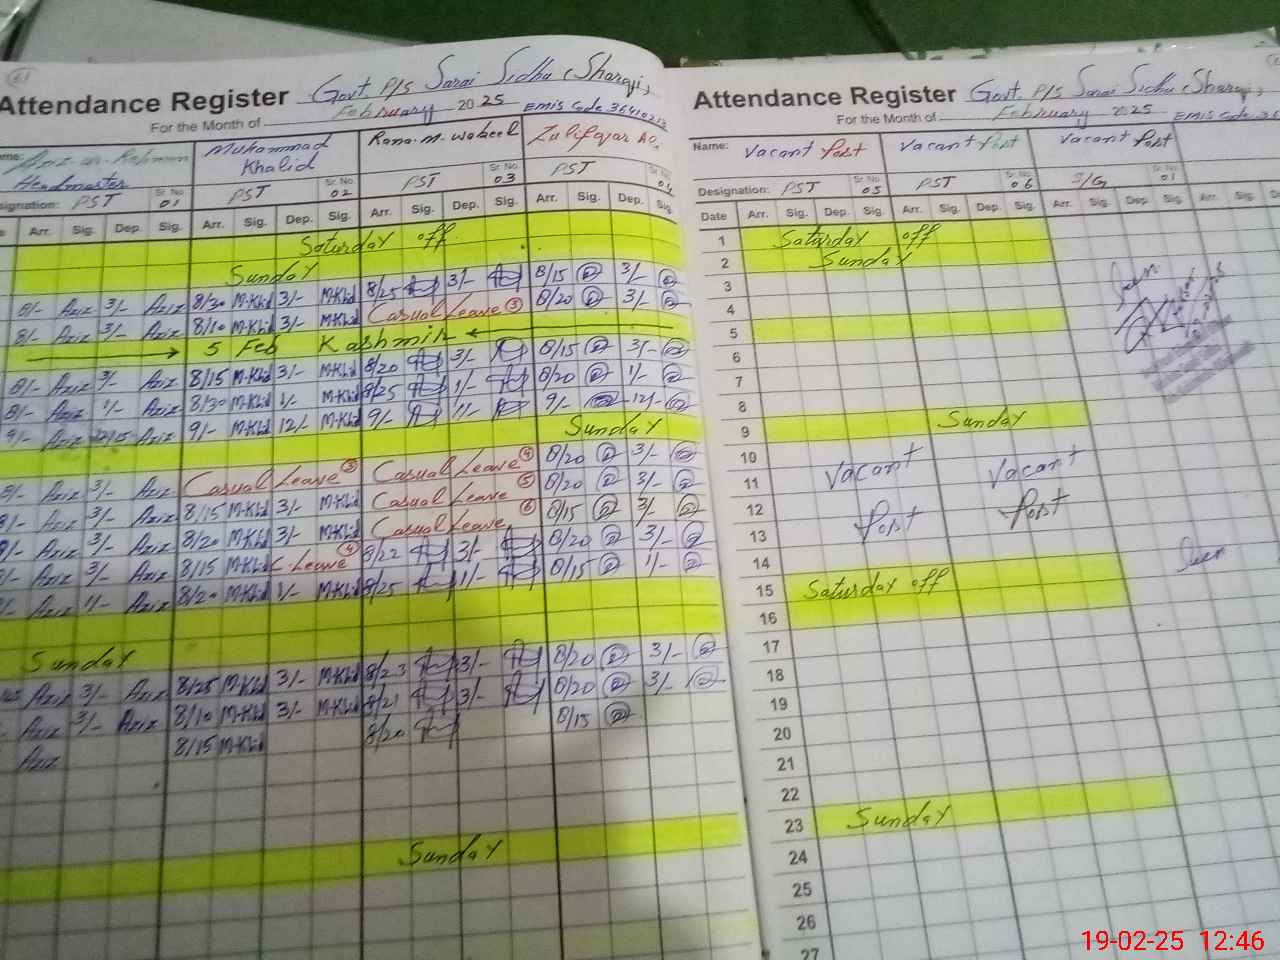 Attendance Register Govt. P/S Sarai Sidhu (Sharqi)
For the Month of February 2025 EMIS Code
Headmaster Muhammad Khalid Rana M. Waheed
PST PST PST PST
Sr. No. 01 Sr. No. 02 Sr. No. 03 Sr. No. 04
Arr. Sig. Dep. Sig. Arr. Sig. Dep. Sig. Arr. Sig. Dep. Sig. Arr. Sig. Dep. Sig.
Saturday off
Sunday
8/- Aziz 3/- Aziz 8/30 M-Khd 3/- M-Khd 8/25 3/- 8/15 3/-
8/- Aziz 3/- Aziz 8/10 M-Khd 3/- M-Khd Casual Leave ③ 8/20 3/-
5 Feb Kashmir
8/- Aziz 3/- Aziz 8/15 M-Khd 3/- M-Khd 8/20 3/- 8/15 3/-
8/- Aziz 1/- Aziz 8/30 M-Khd 1/- M-Khd 8/25 1/- 8/20 1/-
9/- Aziz Aziz 9/- M-Khd 12/- M-Khd 9/- 9/- 12/-
Sunday
8/- Aziz 3/- Aziz Casual Leave ③ Casual Leave ④ 8/20 3/-
8/- Aziz 3/- Aziz 8/15 M-Khd 3/- M-Khd Casual Leave ⑤ 8/20 3/-
Aziz 3/- Aziz 8/20 M-Khd 3/- M-Khd Casual Leave ⑥ 8/15 3/-
Aziz 3/- Aziz 8/15 M-Khd C-Leave ④ 8/22 3/- 8/20 3/-
Aziz 1/- Aziz 8/20 M-Khd 1/- M-Khd 8/25 1/- 8/15 1/-
Sunday
Aziz 3/- Aziz 8/25 M-Khd 3/- M-Khd 8/23 3/- 8/20 3/-
Aziz 3/- Aziz 8/10 M-Khd 3/- M-Khd 8/21 3/- 8/20 3/-
Aziz 8/15 M-Khd 8/20 8/15
Sunday
Attendance Register Govt. P/S Sarai Sidhu (Sharqi)
For the Month of February 2025 EMIS Code
Name: Vacant Post Vacant Post Vacant Post
Designation: PST Sr. No. 05 PST Sr. No. 06 Sr. No. 01
Date Arr. Sig. Dep. Sig. Arr. Sig. Dep. Sig. Arr. Sig. Dep. Sig. Arr. Sig.
1 Saturday off
2 Sunday
3
4
5
6
7
8
9 Sunday
10
11 Vacant Vacant
12
13 Post Post
14
15 Saturday off
16
17
18
19
20
21
22
23 Sunday
24
25
26
27
19-02-25 12:46